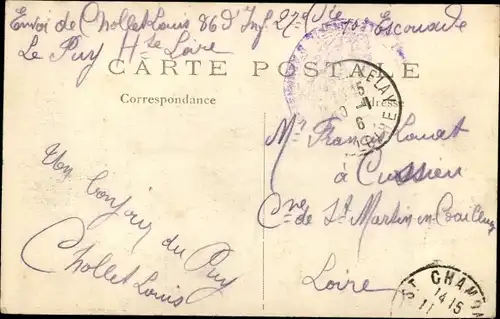 Envoi de Chollet Louis 86e Inf 27e Cie 10e Escouade
Le Puy Hte Loire
CARTE POSTALE
Correspondance
Adresse
VELAY
Mr Francis Louat
à Cussieu
Cne de St Martin en Coailleux
Loire
Un bonjour du Puy
Chollet Louis
ST CHAMOND
14 15
11